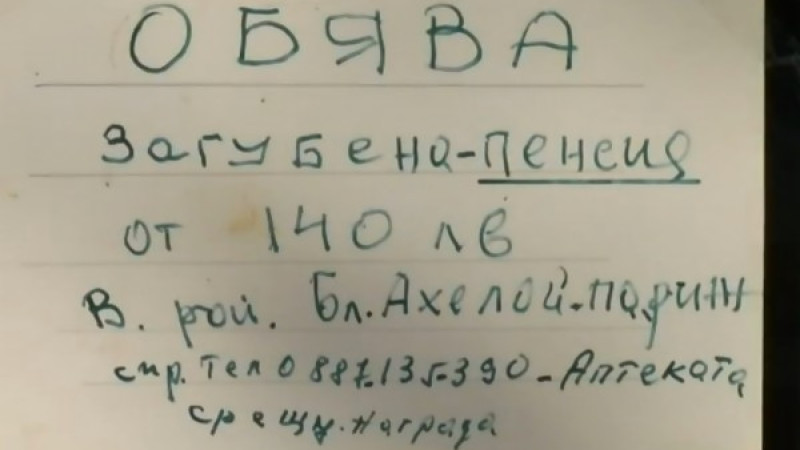 ОБЯВА
Загубена-пенсия
от 140 лв
В. рой. Бл. Ахелой-париж
спр. тел 0887.135-390-Аптеката
срещу. награда